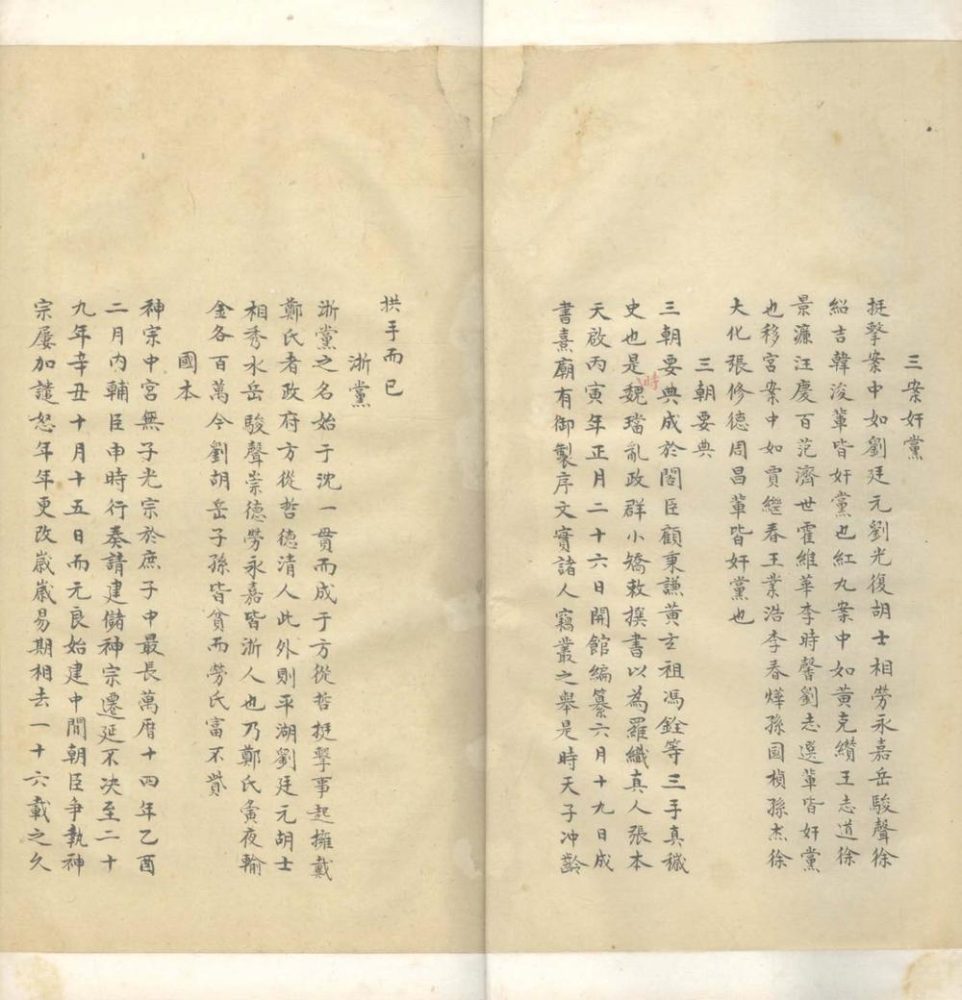 三案奸黨
挺擊案中如劉廷元劉光復胡士相勞永嘉岳駿聲徐
紹吉韓浚軰皆奸黨也紅丸案中如黄克纘王志道徐
景濂汪慶百范濟世霍維華李時馨劉志選軰皆奸黨
也移宮案中如賈繼春王業浩李春燁孫国楨孫杰徐
大化張修德周昌軰皆奸黨也
三朝要典
三朝要典成於閣臣顧秉謙黄立祖馮銓等三手真穢
史也是時魏璫亂政群小矯敕撰書以為羅織真人張本
天啟丙寅年正月二十六日開館編纂六月十九日成
書熹廟有御製序文實諸人竊叢之舉是時天子冲齡
拱手而已
浙黨
浙黨之名始于沈一貫而成于方從哲挺擊事起擁戴
鄭氏者政府方從哲德清人此外則平湖劉廷元胡士
相秀水岳駿聲崇德勞永嘉皆浙人也乃鄭氏夤夜輸
金各百萬今劉胡岳子孫皆貧而勞氏富不貲
國本
神宗中宮無子光宗於庶子中最長萬曆十四年乙酉
二月內輔臣申時行奏請建儲神宗遷延不決至二十
九年辛丑十月十五日而元良始建中間朝臣爭執神
宗屢加譴怒年年更改歲歲易期相去一十六載之久